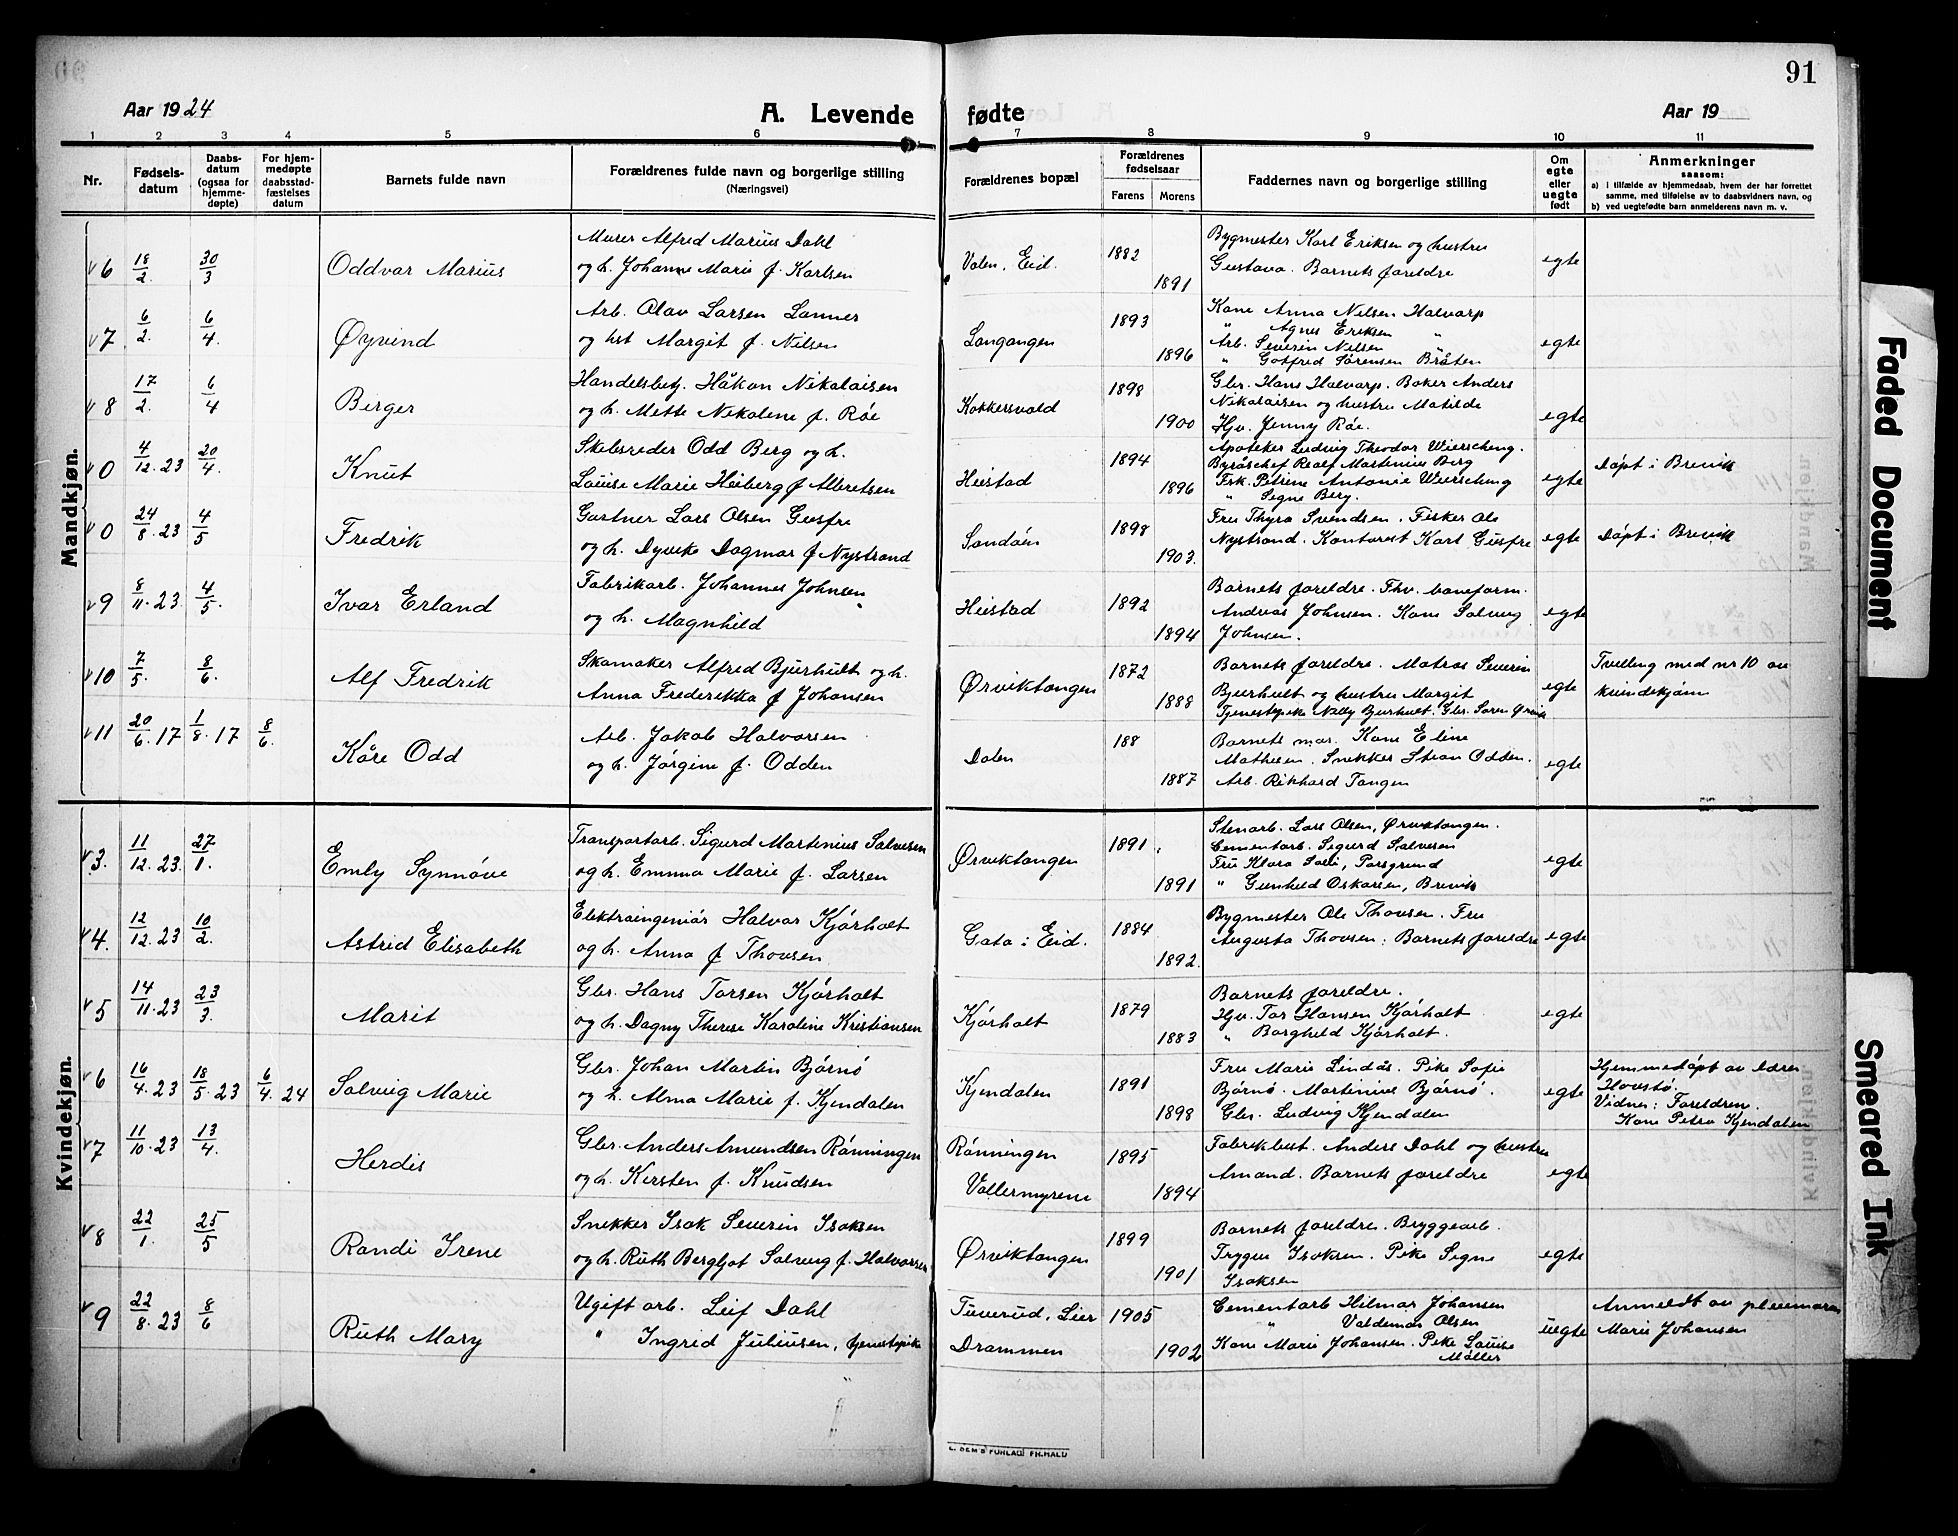 91
Aar 1924
A. Levende
fødte
Aar 19
1 2 3 4 5 6 7 8 9 10 11
Nr.
Fødsels-
datum
Daabs-
datum
(ogsaa for
hjemme-
døpte)
For hjem-
medøpte
daabsstad-
fæstelses
datum
Barnets fulde navn
Forældrenes fulde navn og borgerlige stilling
(Næringsvei)
Forældrenes bopæl
Forældrenes
fødselsaar
Farens Morens
Faddernes navn og borgerlige stilling
Om
egte
eller
uegte
født
Anmerkninger
saasom:
a) i tilfælde av hjemmedaab, hvem der har forrettet
samme, med tilføielse av to daabsvidners navn, og
b) ved uegtefødte barn anmelderens navn m. v.
Mandkjøn.
6 18/2 30/3 Oddvar Marius
Murer Alfred Marius Dahl
og h. Johanne Marie f. Karlsen
Valen, Eid. 1882 1891
Bygmester Karl Eriksen og hustru
Gustava. Barnets foreldre
egte
7 6/2. 6/4. Øyvind
Arb. Olav Larsen Lanner
og hst Margit f. Nilsen
Langangen 1893 1896
Kone Anna Nilsen Halvarp
" Agnes Eriksen "
Arb. Severin Nilsen "
" Gotfred Sørensen Bråten
egte
8 17/2. 6/4 Berger
Handelsbetj. Håkon Nikolaisen
og h. Mette Nikoline f. Røe
Kokkersvold 1898 1900
Gbr. Hans Halvarp. Baker Anders
Nikolaisen og hustru Matilde
Hjv. Jenny Røe.
egte
0 4/12.23 20/4. Knut
Skibsreder Odd Berg og h.
Louise Marie Heiberg f Albretsen
Heistad 1894 1896
Apoteker Ludvig Theodor Wierscheng.
Byråschef Realf Martinius Berg
Frk. Petrine Antonie Wierscheng
" Signe Berg.
egte Døpt i Brevik
0 24/8.23 4/5 Fredrik
Gartner Lars Olsen Gusfre
og h. Dyveke Dagmar f Nystrand
Sandøen 1898 1903.
Fru Thyra Svendsen. Fisker Ole
Nystrand. Kontorist Karl Gusfre
egte Døpt i Brevik
9 8/11.23 4/5. Ivar Erland
Fabrikarb. Johannes Johnsen
og h. Magnhild "
Heistad 1892 1894
Barnets foreldre. Fhv. baneform.
Andreas Johnsen. Kone Solveig
Johnsen.
egte
10 7/5 8/6. Alf Fredrik
Skomaker Alfred Bjurhult og h.
Anna Frederikka f Johansen
Ørviktangen 1872 1888
Barnets foreldre. Matros Severin
Bjurhult og hustru Margit
Tjenestepike Nelly Bjurhult. Gbr. Søren Ørvik
egte
Tvilling med nr 10 av
kvindekjøn
11 20/6.17 1/8.17 8/6. Kåre Odd
Arb. Jakob Halvorsen
og h. Jørgine f. Odden
Dalen 188 1887
Barnets mor. Kone Eline
Mathisen. Snekker Stian Odden.
Arb. Rikhard Tangen
egte
Kvindekjøn.
3. 11/12.23 27/1. Emly Synnøve
Transportarb. Sigurd Martinius Salvesen
og h. Emma Marie f. Larsen
Ørviktangen 1891 1891
Stenarb. Lars Olsen, Ørviktangen.
Cementarb. Sigurd Salvesen
Fru Klara Solli, Porsgrund
" Gunhild Oskarsen, Brevik
egte
4. 12/12.23 10/2. Astrid Elisabeth
Elektroingeniør Halvor Kjørholt
og h. Anna f Thovsen
Gata i Eid. 1884 1892.
Bygmester Ole Thovsen. Fru
Augusta Thovsen. Barnets foreldre
egte
5 14/11.23 23/3. Marit
Gbr. Hans Torsen Kjørholt
og h. Dagny Therese Karoline Kristiansen
Kjørholt 1879 1883
Barnets foreldre.
Hjv. Tor Hansen Kjørholt
" Borghild Kjørholt.
egte
6 16/4.23 18/5.23 6/4.24 Solveig Marie
Gbr. Johan Martin Bjørnø
og h. Alma Marie f. Kjendalen
Kjendalen 1891 1898
Fru Marie Lindås. Pike Sofie
Bjørnø. Martinius Bjørnø.
Gbr. Ludvig Kjendalen
egte
Hjemmedøpt av lærer
Hovestø.
Vidner: Foreldren.
Kone Petra Kjendalen
7 11/10.23 13/4. Herdis
Gbr. Anders Amundsen Rønningen
og h. Kirsten f. Knudsen
Rønningen
Vallermyrene 1895 1894
Fabrikbest. Anders Dahl og hustru
Amand. Barnets foreldre
egte
8 22/1 25/5 Randi Irene
Snekker Isak Severin Isaksen
og h. Ruth Bergljot Solveig f. Halvorsen
Ørviktangen 1899 1901
Barnets foreldre. Bryggearb.
Trygve Isaksen. Pike Signe
Isaksen
egte
9 22/8.23 8/6 Ruth Mary
Ugift arb. Leif Dahl
" Ingrid Juliusen, tjenestepike
Tuverud, Lier
Drammen 1905 1902
Cementarb Hilmar Johansen
" Valdemar Olsen
Kone Marie Johansen. Pike Louise
Møller
uegte
Anmeldt av pleiemoren
Marie Johansen
Faded Document
Smeared Ink